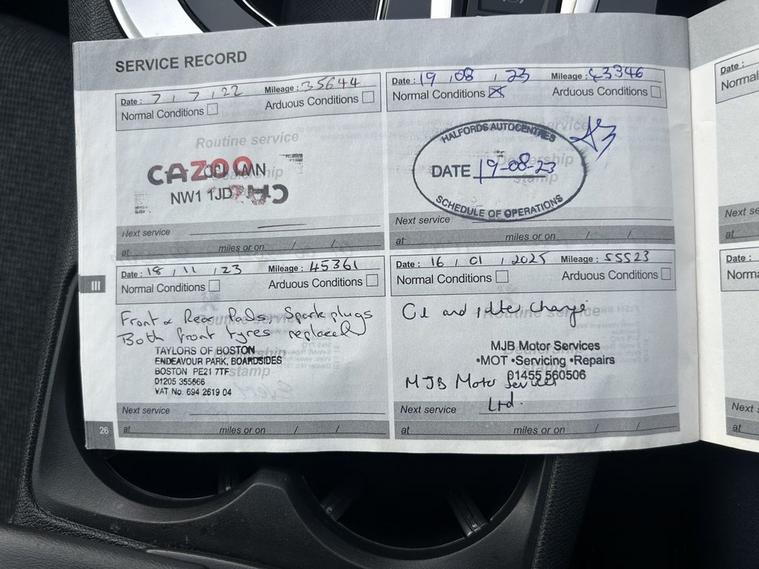 SERVICE RECORD
Date : 7 / 7 / 22 Mileage : 35644
Normal Conditions Arduous Conditions
Routine service
CAZOO
NW1 1JD
Next service
at miles or on / /
Date : 19 / 08 / 23 Mileage : 43346
Normal Conditions Arduous Conditions
HALFORDS AUTOCENTRES
DATE 19-08-23
SCHEDULE OF OPERATIONS
Next service
at miles or on / /
III
Date : 18 / 11 / 23 Mileage : 45361
Normal Conditions Arduous Conditions
Front & Rear Pads, Spark plugs
Both front tyres replaced
TAYLORS OF BOSTON
ENDEAVOUR PARK, BOARDSIDES
BOSTON PE21 7TF
01205 355666
VAT No. 694 2619 04
stamp
Next service
26
at miles or on / /
Date : 16 / 01 / 2025 Mileage : 55523
Normal Conditions Arduous Conditions
Oil and filter change
MJB Motor Services
•MOT •Servicing •Repairs
01455 560506
MJB Motor Services
Ltd.
Next service
at miles or on / /
Date :
Normal
Next se
at
Date :
Norma
Next s
at